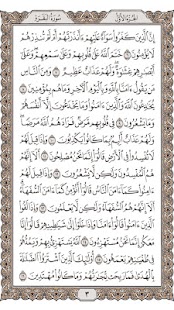 الجزء الأول سورة البقرة
إن الذين كفروا سواء عليهم ءأنذرتهم أم لم تنذرهم
لا يؤمنون ٦ ختم الله على قلوبهم وعلى سمعهم وعلى
أبصرهم غشوة ولهم عذاب عظيم ٧ ومن الناس
من يقول ءامنا بالله وباليوم الأخر وما هم بمؤمنين ٨
يخدعون الله والذين ءامنوا وما يخدعون إلا أنفسهم
وما يشعرون ٩ في قلوبهم مرض فزادهم الله مرضا
ولهم عذاب أليم بما كانوا يكذبون ١٠ وإذا قيل لهم
لا تفسدوا في الأرض قالوا إنما نحن مصلحون ١١ ألا
إنهم هم المفسدون ولكن لا يشعرون ١٢ وإذا قيل لهم
ءامنوا كما ءامن الناس قالوا أنؤمن كما ءامن السفهاء ألا
إنهم هم السفهاء ولكن لا يعلمون ١٣ وإذا لقوا
الذين ءامنوا قالوا ءامنا وإذا خلوا إلى شيطينهم قالوا إنا
معكم إنما نحن مستهزءون ١٤ الله يستهزئ بهم ويمدهم
في طغينهم يعمهون ١٥ أولئك الذين اشتروا الضللة
بالهدى فما ربحت تجرتهم وما كانوا مهتدين ١٦
٣